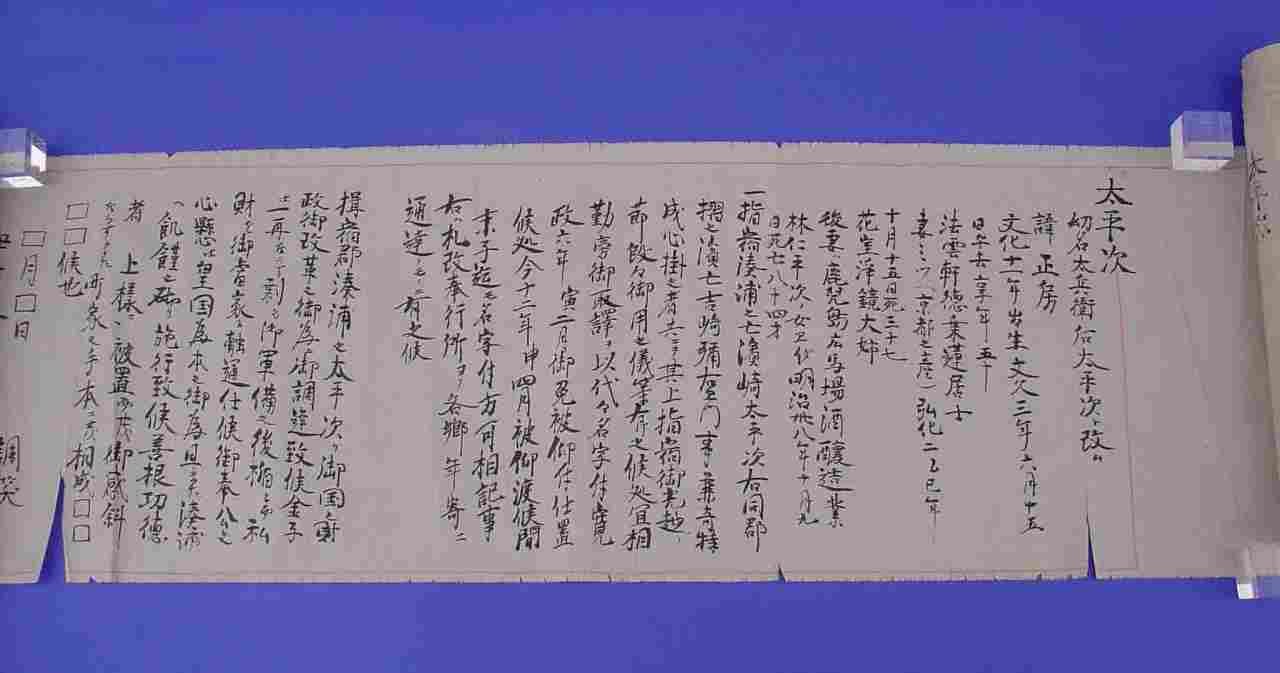 太平次
幼名太兵衛后太平次ト改ム
諱 正房
文化十一年出生文久三年六月十五
日卒去ス享年五十
法雲軒徳乗蓮居士
妻ミツ(京都之産)弘化二乙巳年
十月十五日死三十七
花室浄鏡大姉
後妻ハ鹿児島右馬場酒醸造業
林仁平次女 明治卅八年十月九
日死七八十四才
一指宿湊浦之士濱崎太平次右同郡
摺之濱士吉崎彌右衛門事兼々奇特
成心掛之者共ニテ其上指宿御光越
節段々御用之儀等有之候処宜相
勤旁御取譯ヲ以代々名字付
政六年寅二月御免被仰付置
候処今十二年申四月被仰渡候間
末子迄モ名字付方可相記事
右ハ札改奉行所ヨリ各郷年寄ニ
通達モ有之候
揖宿郡湊浦之太平次ハ御国之財
政御改革之御為御調達致候金子
二再
財ヲ御 仕候御奉公之
心懸心望国為本之御為且又湊浦
ハ飢饉之砌リ施行致候善根功徳
者 上様ニ被置候テモ御感斜
ナラズ 町家之手本ニモ相成□□
□□候也
□月□日
調笑
太平次